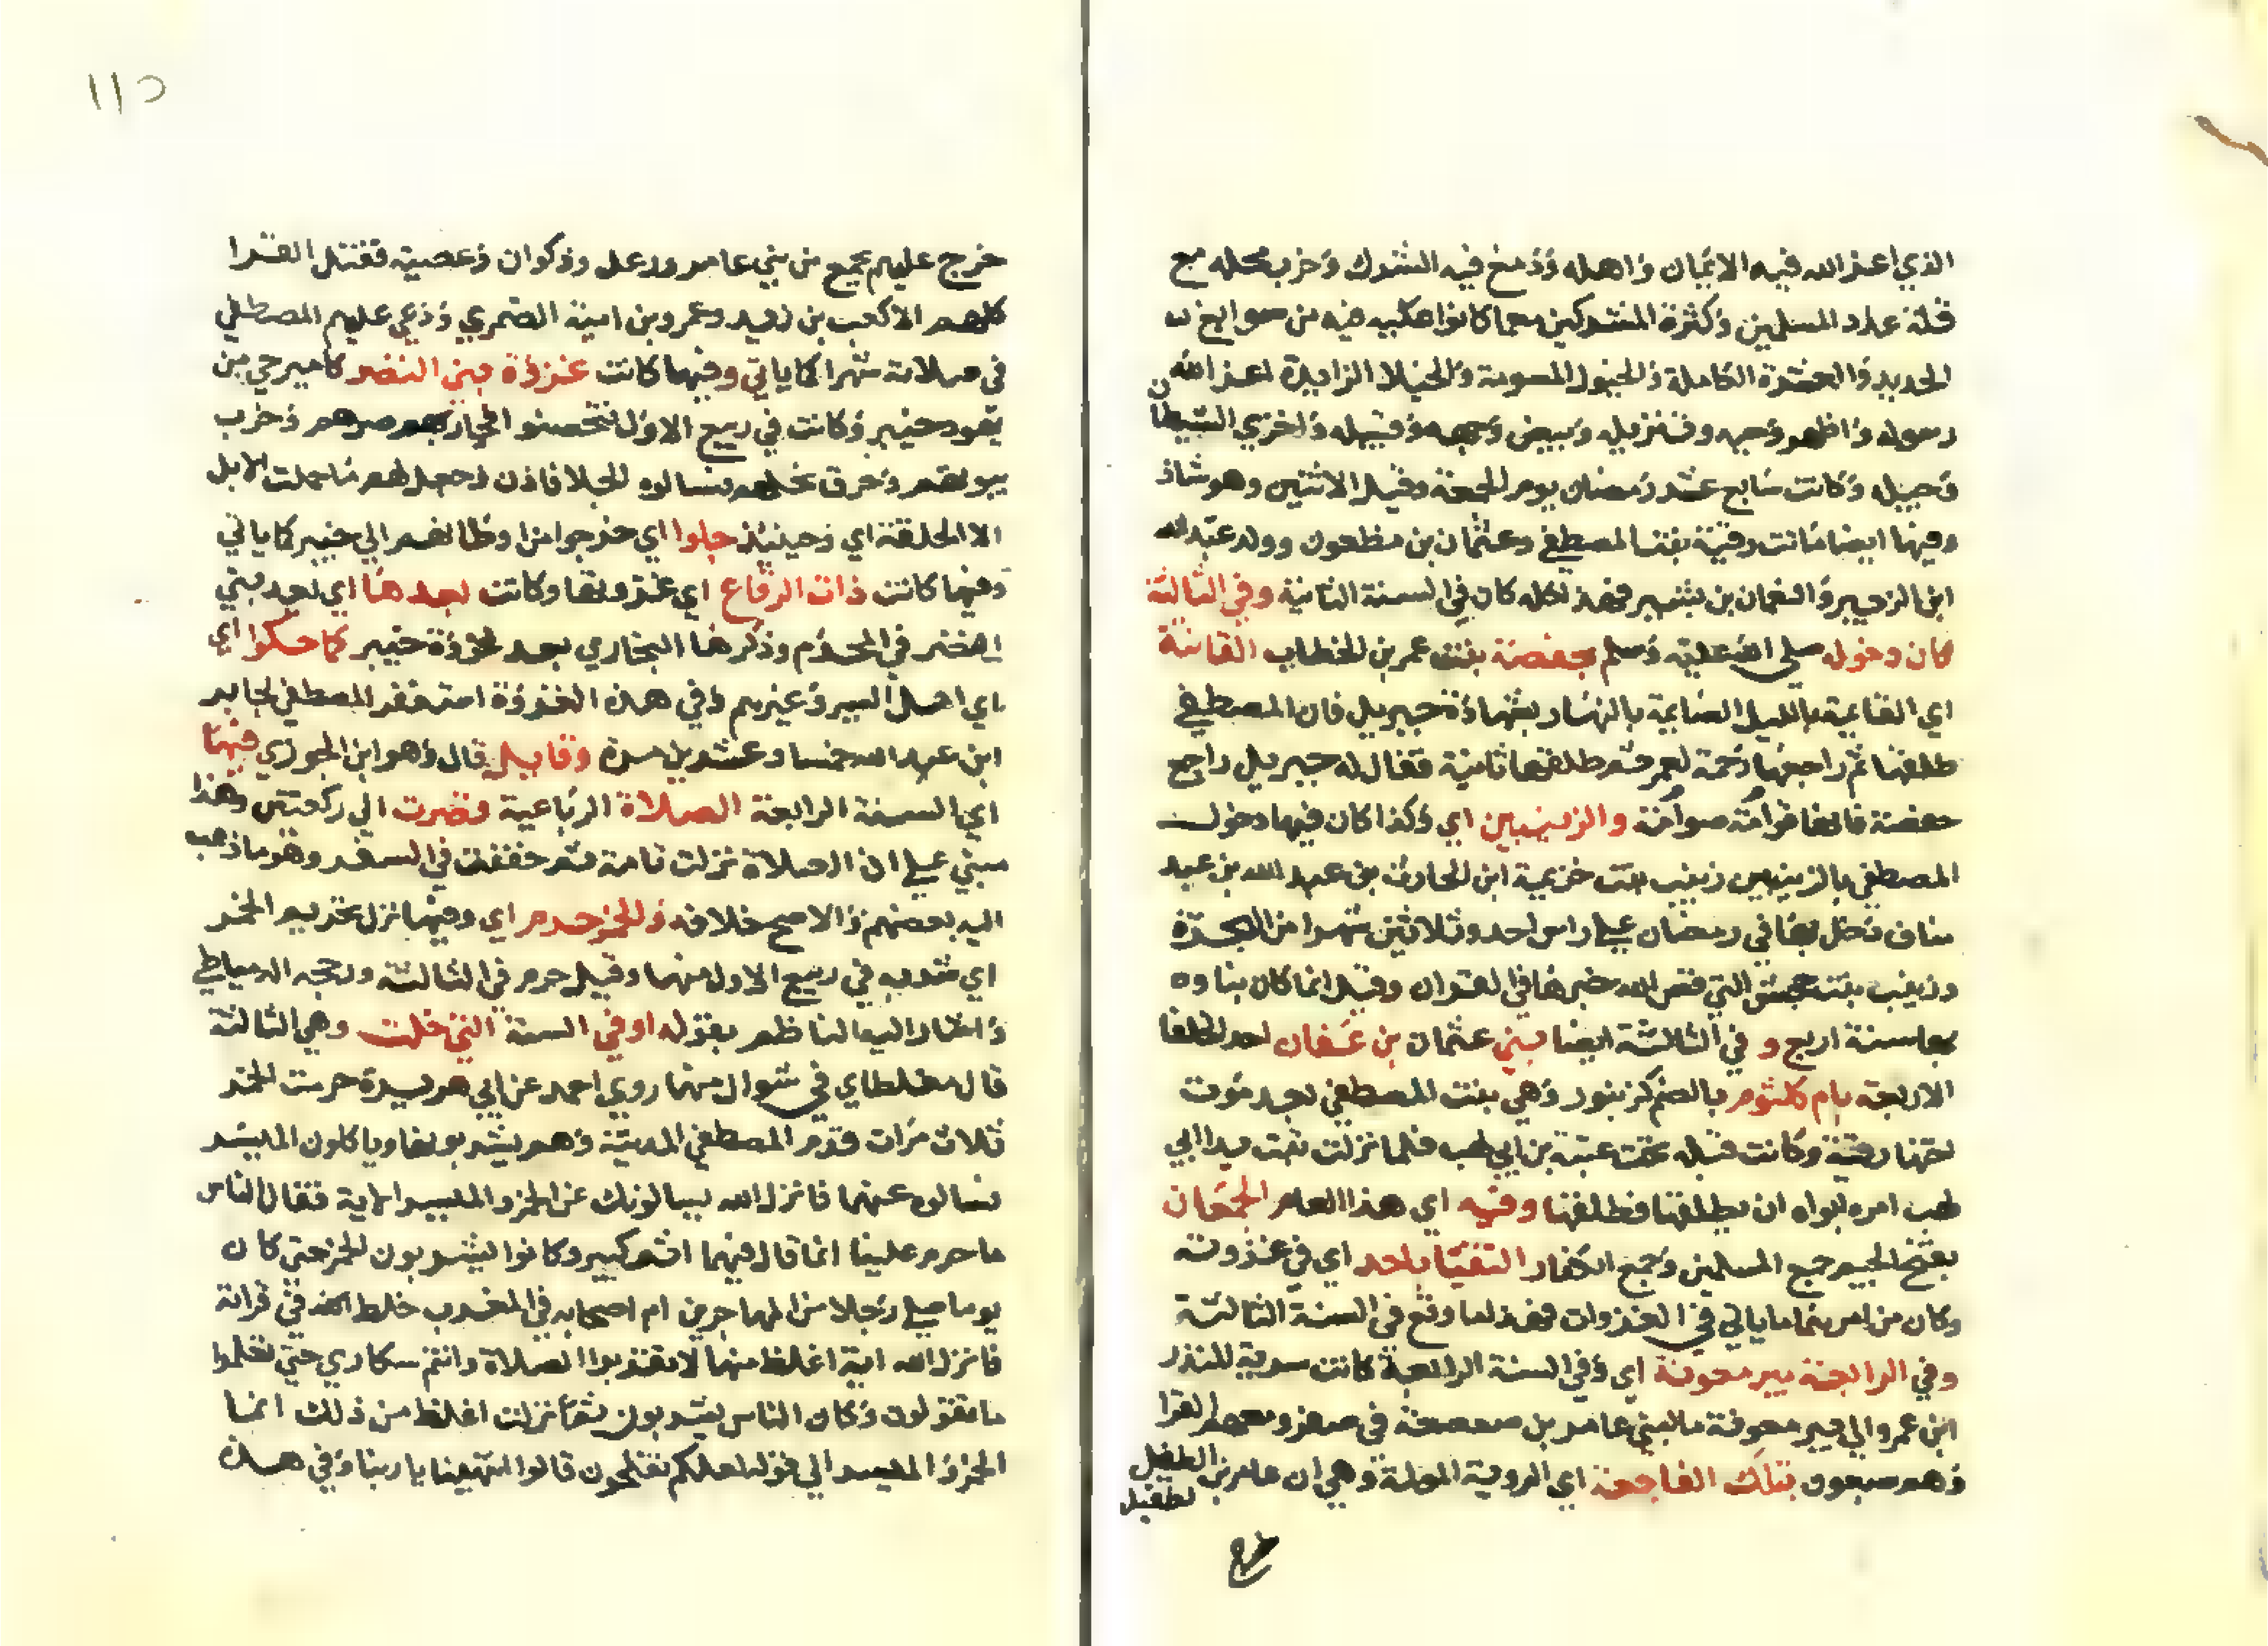 الذي اعز الله فيه الايمان واهله ودمغ فيه الشرك وخرب محله مع
قلة عدد المسلمين وكثرة المشركين مع ما كانوا عليه فيه من سوابغ
الحديد والعدة الكاملة والخيول المسومة والخيلا الزايدة اعز الله
رسوله واظهر وحيه وتنزيله وبيض وجهه وقبيله واخزي الشيطان
وجيله وكانت سابع عشر رمضان يوم الجمعة وقيل الاثنين وهو شاذ
وفيها ايضا ماتت رقية بنت المصطفي وعثمان بن مظعون وولد عبد الله
ابن الزبير والنعمان بن بشير فهذا كله كان في السنة الثانية وفي الثالثة
كان دخوله صلي الله عليه وسلم بحفصة بنت عمر بن الخطاب القانتة
اي القايمة بالليل الصايمة بالنهار بشهادة جبريل فان المصطفي
طلقها ثم راجعها رحمة لعمر ثم طلقها ثانية فقال له جبريل راجع
حفصة فانها قوامة صوامة والزينبين اي وكذا كان فيها دخول
المصطفي بالزينبين زينب بنت خزيمة ابن الحارث بن عبد الله بن عبد
مناف دخل بها في رمضان علي راس احد وثلاثين شهرا من الهجرة
وزينب بنت جحش التي قص الله خبرها في القران وقيل انما كان بناوه
بها سنة اربع و في الثالثة ايضا بني عثمان بن عفان احد الخلفا
الاربعة بام كلثوم بالضم كزنبور وهي بنت المصطفي بعد موت
اختها رقية وكانت قبله تحت عتبة بن ابي لهب فلما نزلت تبت يدا ابي
لهب امره ابواه ان يطلقها فطلقها وفيه اي هذا العام الجمعان
بفتح الجيم جمع المسلمين وجمع الكفار التقيا باحد اي في غزوته
وكان من امرهما ما ياتي في الغزوات فهذا ما وقع في السنة الثالثة
وفي الرابعة بير معونة اي وفي السنة الرابعة كانت سرية المنذر
ابن عمرو الي بير معونة ما لبني عامر بن صعصعة في صفر ومعه القرا
وهم سبعون بتلك الفاجعة اي الرزية المولمة وهي ان عامر بن الطفيل
خرج
١١٥
خرج عليهم بجمع من بني عامر ورعل وذكوان وعصية فقتل القرا
كلهم الا كعب بن زيد وعمرو بن امية الضمري ودعي عليهم المصطفي
في صلاته شهرا كما ياتي وفيها كانت غزوة بني النضر كامير حي من
يهود خيبر وكانت في ربيع الاول فتحصنوا فحاصرهم وخرب
بيوتهم وحرق نخلهم فسالوه الجلا فاذن وجعل لهم ما حملت الابل
الا الحلقة اي وحينئذ جلوا اي خرجوا من اوطانهم الي خيبر كما ياتي
وفيها كانت ذات الرقاع اي غزوتها وكانت بعدها اي بعد بني
النضر في المحرم وذكرها البخاري بعد غزوة خيبر كما حكوا اي
اي اهل السير وغيرهم وفي هذه الغزوة استغفر المصطفي لجابر
ابن عبد الله خمسا وعشرين مرة وقايل قال وهو ابن الجوزي فيها
اي السنة الرابعة الصلاة الرباعية قصرت الي ركعتين وهذا
مبني علي ان الصلاة نزلت تامة ثم خففت في السفر وهو ما ذهب
اليه بعضهم والاصح خلافه والخمر حرم اي وفيها نزل تحريم الخمر
اي شربه في ربيع الاول منها وقيل حرم في الثالثة ورجحه الدمياطي
واشار اليه الناظم بقوله او في السنة التي خلت وهي الثالثة
قال مغلطاي في شوال منها روي احمد عن ابي هريرة حرمت الخمر
ثلاث مرات قدم المصطفي المدينة وهم يشربونها وياكلون الميسر
فسالوه عنهما فانزل الله يسالونك عن الخمر والميسر الاية فقال الناس
ما حرم علينا انما قال فيهما اثم كبير وكانوا يشربون الخمر حتي كان
يوما صلي رجلا من المهاجرين ام اصحابه في المغرب خلط في قراته
فانزل الله اية اغلظ منها لا تقربوا الصلاة وانتم سكاري حتي تعلموا
ما تقولون وكان الناس يشربون ثم نزلت اغلظ من ذلك انما
الخمر والميسر الي قوله لعلكم تفلحون قالوا انتهينا يا ربنا وفي هذه